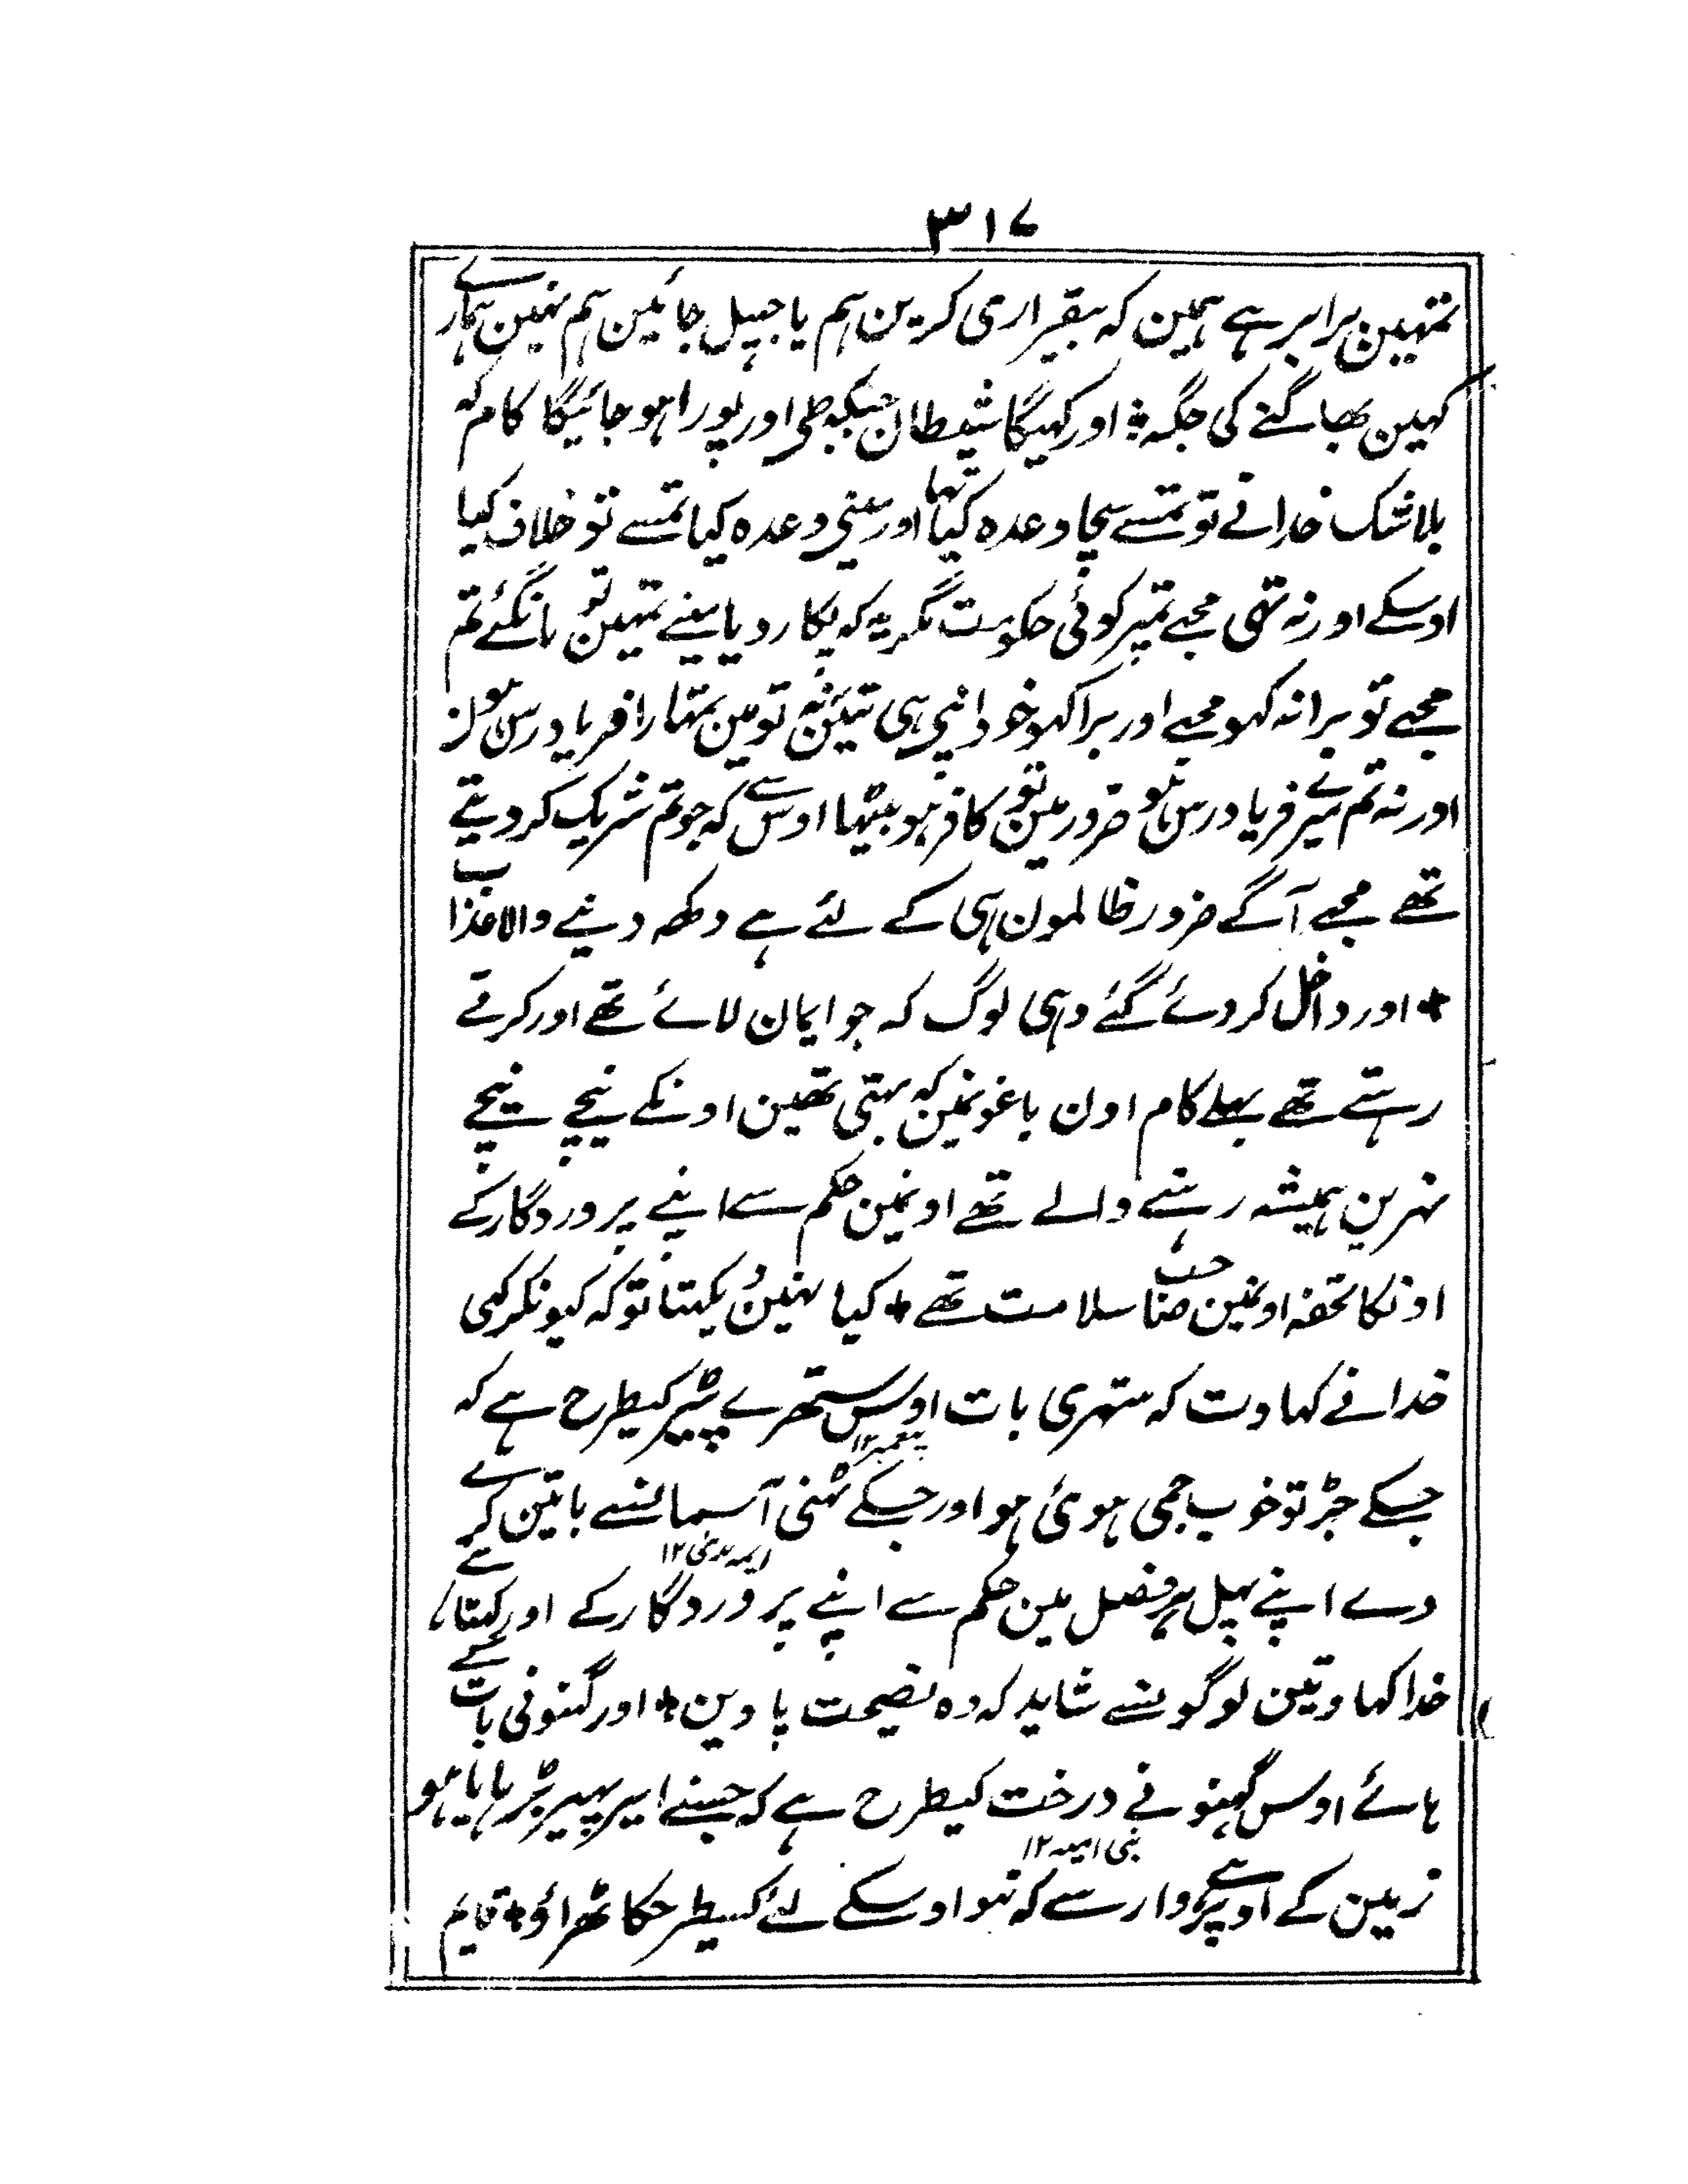 ۳۱۷
تمہین برابر ہے ہمین کہ بیقراری کرین ہم یا جہیل جائین ہم نہین ہمارے
کہین بھاگنے کی جگہ ٭ اور کہیگا شیطان جبکہ طی اور پورا ہو جائیگا کام کہ
بلاشک خدا نے تو تمسے سچا وعدہ کیا تہا اور مینے وعدہ کیا تمسے تو خلاف کیا
اوسکے اور نہ تھی مجہے تمپر کوئی حکومت مگر یہ کہ پکار دیا مینے تمہین تو مانگئے تم
مجہے تو برا نہ کہو مجہے اور برا کہو خود اپنی ہی تیئن نہ تو مین تمہارا فریادرس ہون
اور نہ تم میرے فریادرس ہو ضرور مین تو کافر ہو بیٹھا اوس سے کہ جو تم شریک کر دیتے
تھے مجہے آگے ضرور ظالمون ہی کے لئے ہے دکھ دینے والا عذاب
٭ اور داخل کر دئے گئے وہی لوگ کہ جو ایمان لائے تھے اور کرتے
رہتے تھے بہلے کام اون باغونمین کہ بہتی تھین اونکے نیچے نیچے
نہرین ہمیشہ رہنے والے تھے اونمین حکم سے اپنے پروردگار کے
اونکا تحفہ اونمین صاحب سلامت تھے ٭ کیا نہین دیکہتا تو کہ کیونکر کہی
خدا نے کہاوت کہ ستہری بات اوس ستھرے پیڑ کیطرح ہے کہ
پیغمبر ۱۲
جسکے جڑ تو خوب جمی ہوئی ہو اور جسکے ٹہنی آسمانسے باتین کرے
ایمہ ہدی ۱۲
دے اپنے پہل ہر فصل مین حکم سے اپنے پروردگار کے اور کہتا ہے
خدا کہاوتین لوگونسے شاید کہ وہ نصیحت پاوین ٭ اور گہنونی بات کے
ہائے اوس گہنونے درخت کیطرح ہے کہ جسنے ایر پہیر جڑ ہا پا یا ہو
بنی امیہ ۱۲
زمین کے اوپر ہے وار سے کہ نہو اوسکے لئے کسیطرحکا ٹھراؤ ٭ قایم